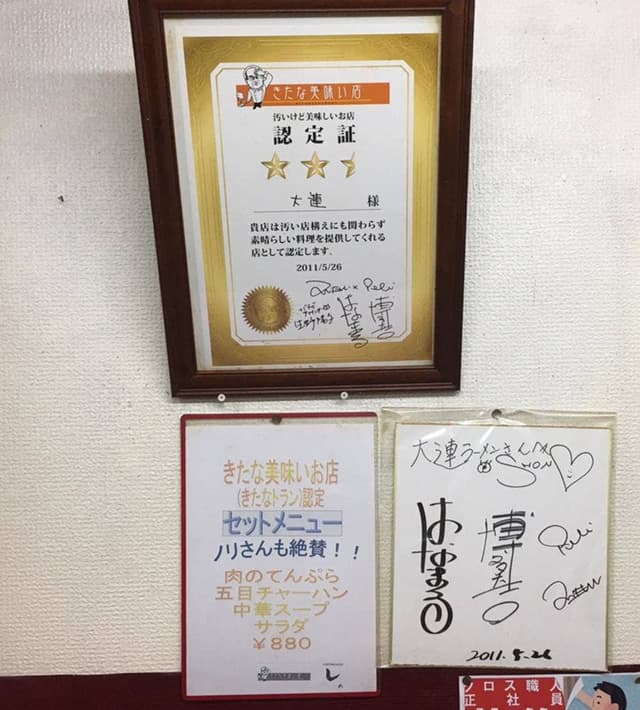 きたな美味い店
汚いけど美味しいお店
認定証
大連 様
貴店は汚い店構えにも関わらず
素晴らしい料理を提供してくれる
店として認定します。
2011/5/26
はなまる
博多華丸
きたな美味いお店
(きたなトラン)認定
セットメニュー
ノリさんも絶賛!!
肉のてんぷら
五目チャーハン
中華スープ
サラダ
¥880
大連ラーメンさん江
SHON
はなまる
2011.5.26
プロス職人
正社員